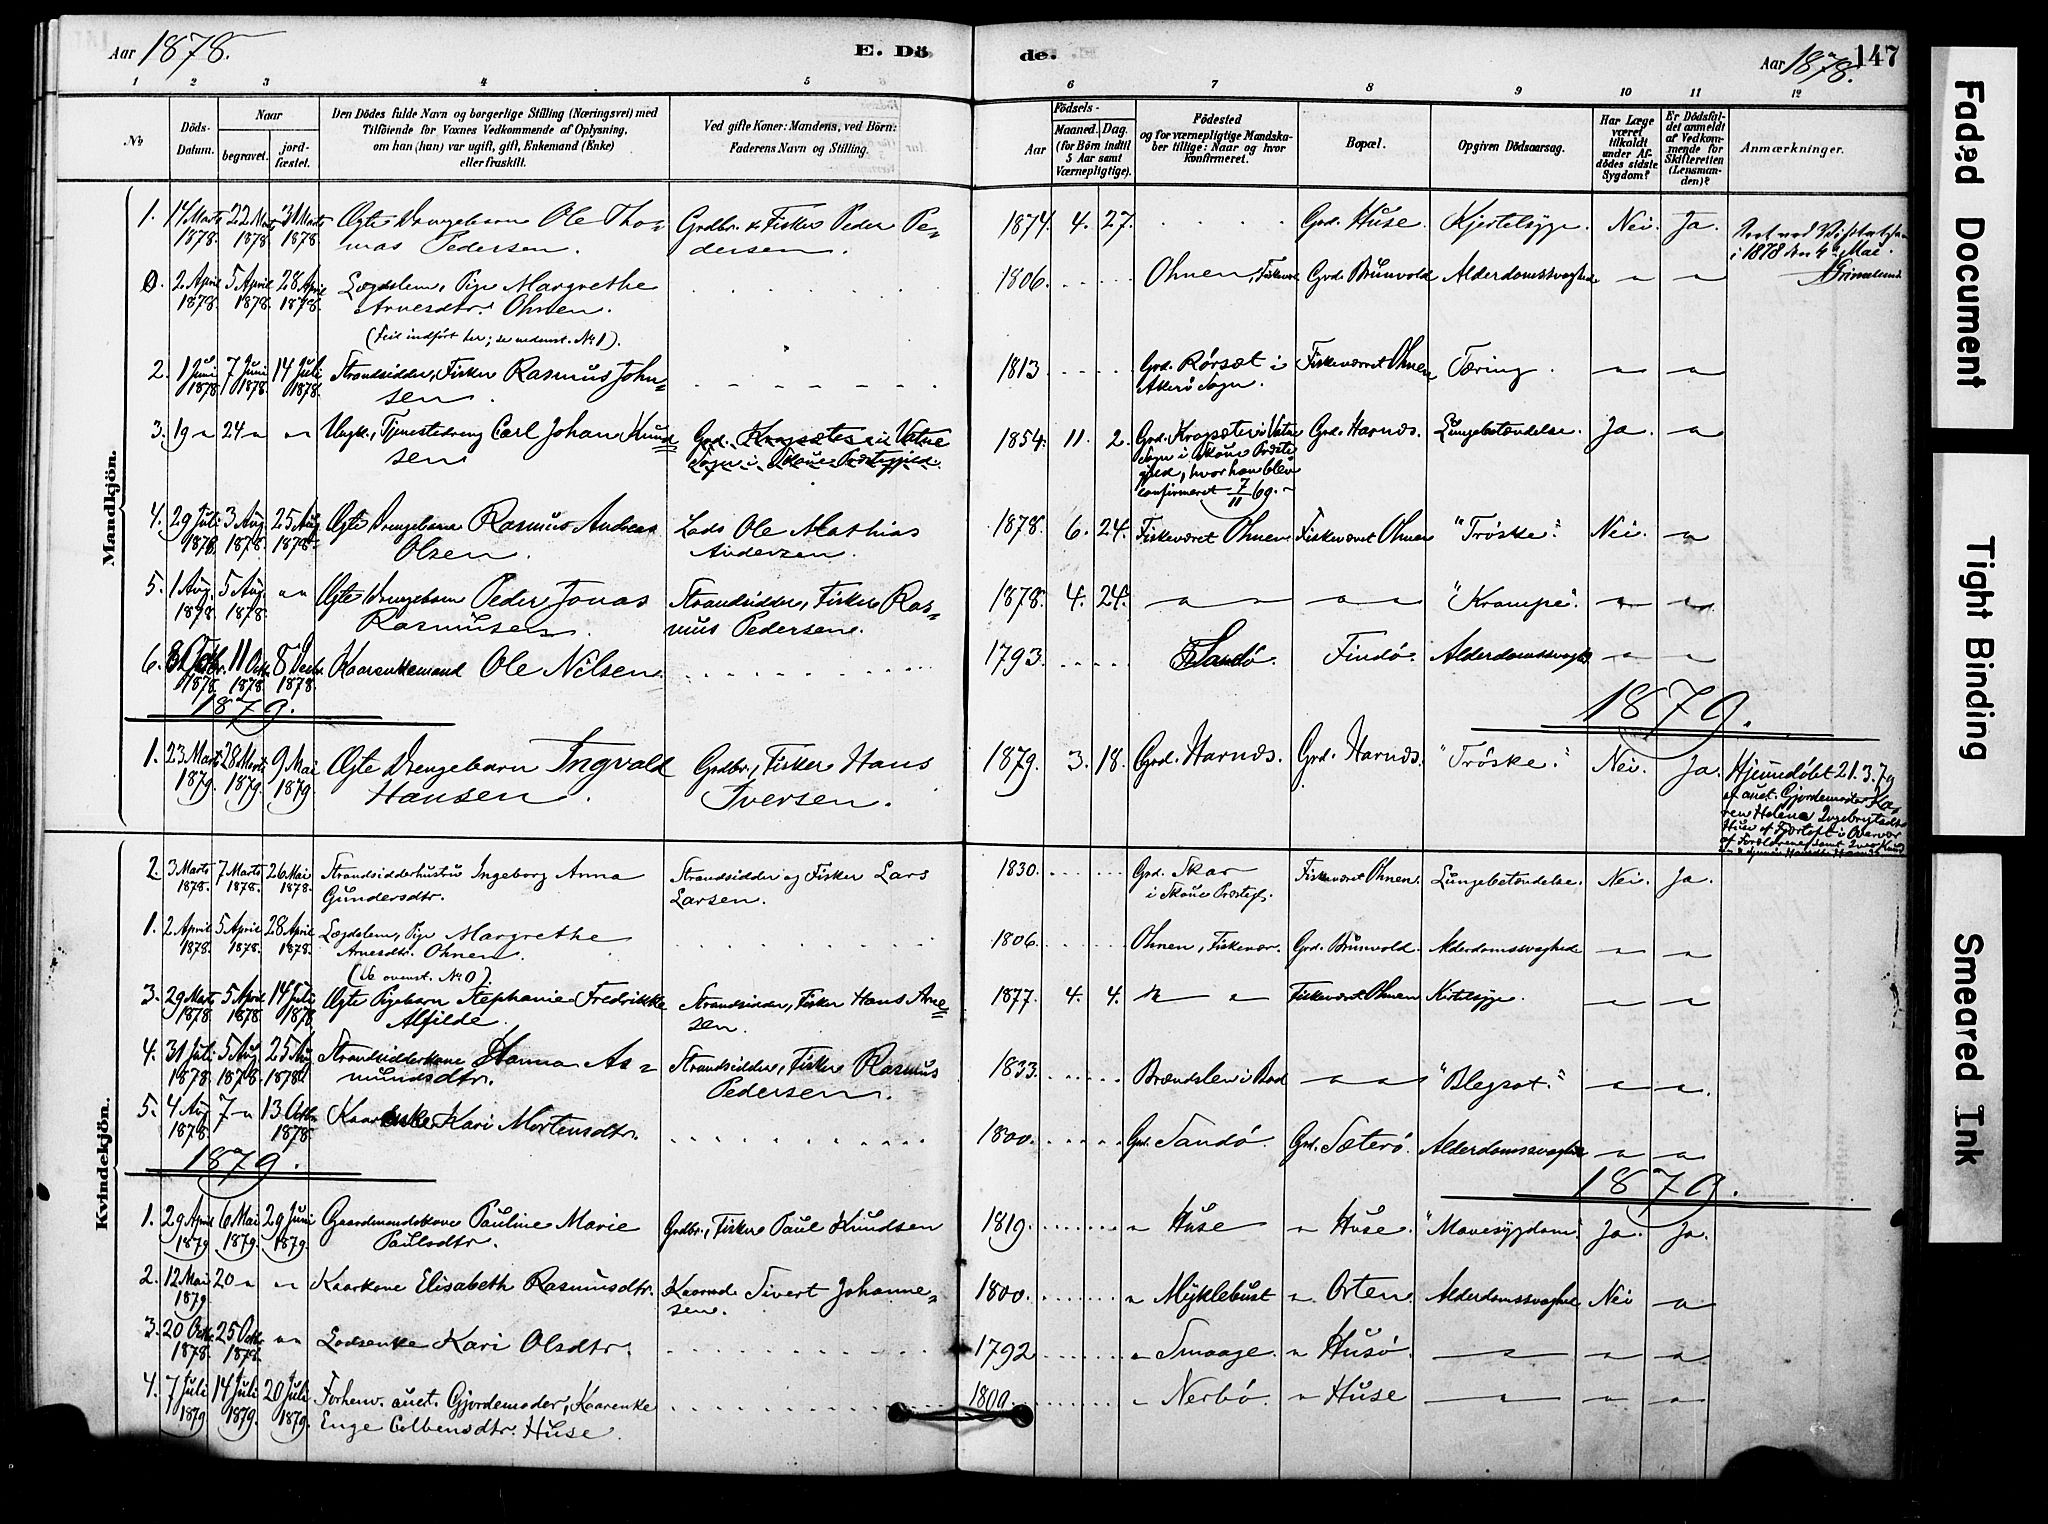 Aar 1878.
E. Dö
de.
Aar 1878.
147
1 2 3 4 5 6 7 8 9 10 11 12
No
Döds-
Datum.
Naar
begravet.
jord-
fæstet.
Den Dödes fulde Navn og borgerlige Stilling (Næringsvei) med
Tilföiende for Voxnes Vedkommende af Oplysning,
om han (hun) var ugift, gift, Enkemand (Enke)
eller fraskilt.
Ved gifte Koner: Mandens, ved Börn:
Faderens Navn og Stilling.
Födsels-
Aar
Maaned.
Dag.
(for Börn indtil
5 Aar samt
Værnepligtige).
Födested
og for værnepligtige Mandska-
ber tillige: Naar og hvor
Konfirmeret.
Bopæl.
Opgiven Dödsaarsag.
Har Læge
været
tilkaldt
under Af-
dödes sidste
Sygdom?
Er Dödsfal-
det anmeldt
af Vedkom-
mende for
Skifteretten
(Lensman-
den)?
Anmærkninger.
Mandkjön.
1. 14 Marts 1878. 22 Marts 1878 31 Marts 1878 Ægte Drengebarn Ole Tho- Grdbr. & Fisker Peder Pe- 1874. 4. 27. Grd. Huse. Kjertelsyge. Nei. Ja.
mas Pedersen. dersen.
i 1878 den 4de Mai.
0. 2 April 1878. 5 April 1878. 28 April 1878. Lægdslem, Pige Margrethe 1806. Ohnen, Fiskevær Grd. Brunvold Alderdomssvaghed " "
Arnesdtr. Ohnen.
(Feil indført her; se nedenst. No 1).
2. 1 Juni 1878. 7 Juni 1878. 14 Juli 1878. Strandsidder, Fisker Rasmus John= 1813. Grd. Rörsæt i Fiskeværet Ohnen Tæring. " "
sen. Akerö Sogn.
3. 19 " 24 " " Ungk., Tjenestedreng Carl Johan Knud Grd. Kragsæter i Vatne 1854. 11. 2. Grd. Kragsæter i Vatne Grd. Harnæs. Lungebetændelse. Ja. "
sen Sogn i Skoue Præstegjeld. Sogn i Skoue Præste
gjeld, hvor han blev
confirmeret 7/11 69.
4. 29 Juli 1878. 3 Aug. 1878. 25 Aug. 1878. Ægte Drengebarn Rasmus Andreas Lods Ole Mathias 1878. 6. 24. Fiskeværet Ohnen Fiskeværet Ohnen "Tröske." Nei. "
Olsen. Andersen.
5. 1 Aug. 1878. 5 Aug. 1878. " " Ægte Drengebarn Peder Jonas Strandsidder, Fisker Ras- 1878. 4. 24. " " " " "Krampe." " "
Rasmusen. mus Pedersen.
6. 1878. 11 Octbr. 1878. 8 Decbr. 1878. Kaarenkemand Ole Nilsen. 1793. Sandö. Findö. Alderdomssvaghed " "
1879. 1879.
1. 23 Marts 1879. 28 Marts 1879. 9 Mai 1879. Ægte Drengebarn Ingvald Grdbr., Fisker Hans 1879. 3. 18. Grd. Harnæs. Grd. Harnæs. "Tröske." Nei. Ja. Hjemdöbt 21.3.79
Hansen. Iversen.
af auct. Gjordemoder Ka-
ren Helene
Kvindekjön.
2. 3 Marts 1878. 7 Marts 1878. 26 Mai 1878. Strandsidderhustru Ingeborg Anna Strandsidder og Fisker Lars 1830. Grd. Skar Fiskeværet Ohnen. Lungebetændelse. Nei. Ja.
Gundersdtr. Larsen. i Skoue Præstegj.
1. 2 April 1878. 5 April 1878. 28 April 1878. Lægdslem, Pige Margrethe 1806. Ohnen, Fiskevær. Grd. Brunvold. Alderdomssvaghed " "
Arnesdtr. Ohnen.
(Se ovenst. No 0).
3. 29 Marts 1878 5 April 1878 14 Juli 1878 Ægte Pigebarn Stephanie Fredrikke Strandsidder, Fisker Hans Arne= 1877. 4. 4. " " Fiskeværet Ohnen Kirtelsyge. " "
Alfilde. sen.
4. 31 Juli 1878 5 Aug. 1878. 25 Aug 1878. Strandsidderkone Hanna As= Strandsidder, Fisker Rasmus 1833. Brændslen i Bod " " "Blegsot." " "
mundsdtr. Pedersen.
5. 4 Aug 1878. 7 " 13 Octbr 1878. Kaarenke Kari Mortensdtr. 1800. Grd. Sandö. Grd. Sæterö. Alderdomssvaghed " "
1879. 1879.
1. 29 April 1879 6 Mai 1879. 29 Juni 1879. Gaardmandskone Pauline Marie Grdbr., Fisker Paul Knudsen 1819. " Huse " Huse. "Mavesygdom." Ja. Ja.
Paulsdtr.
2. 12 Mai 1879. 20 " " Kaarkone Elisabeth Rasmusdtr. Kaarmd. Sivert Johanne= 1800. " Myklebust " Orten. Alderdomssvaghed Nei "
sen.
3. 20 Octbr. 1878. 25 Octbr. 1878. " " Lodsenke Kari Olsdtr. 1792 " Smaage. " Husö. " " "
4. 7 Juli 1879 14 Juli 1879. 20 Juli 1879. Forhenv. auct. Gjordemoder, Kaarenke 1809. " Nerbö. " Huse " " "
Enge Colbensdtr. Huse.
Faded Document
Tight Binding
Smeared Ink